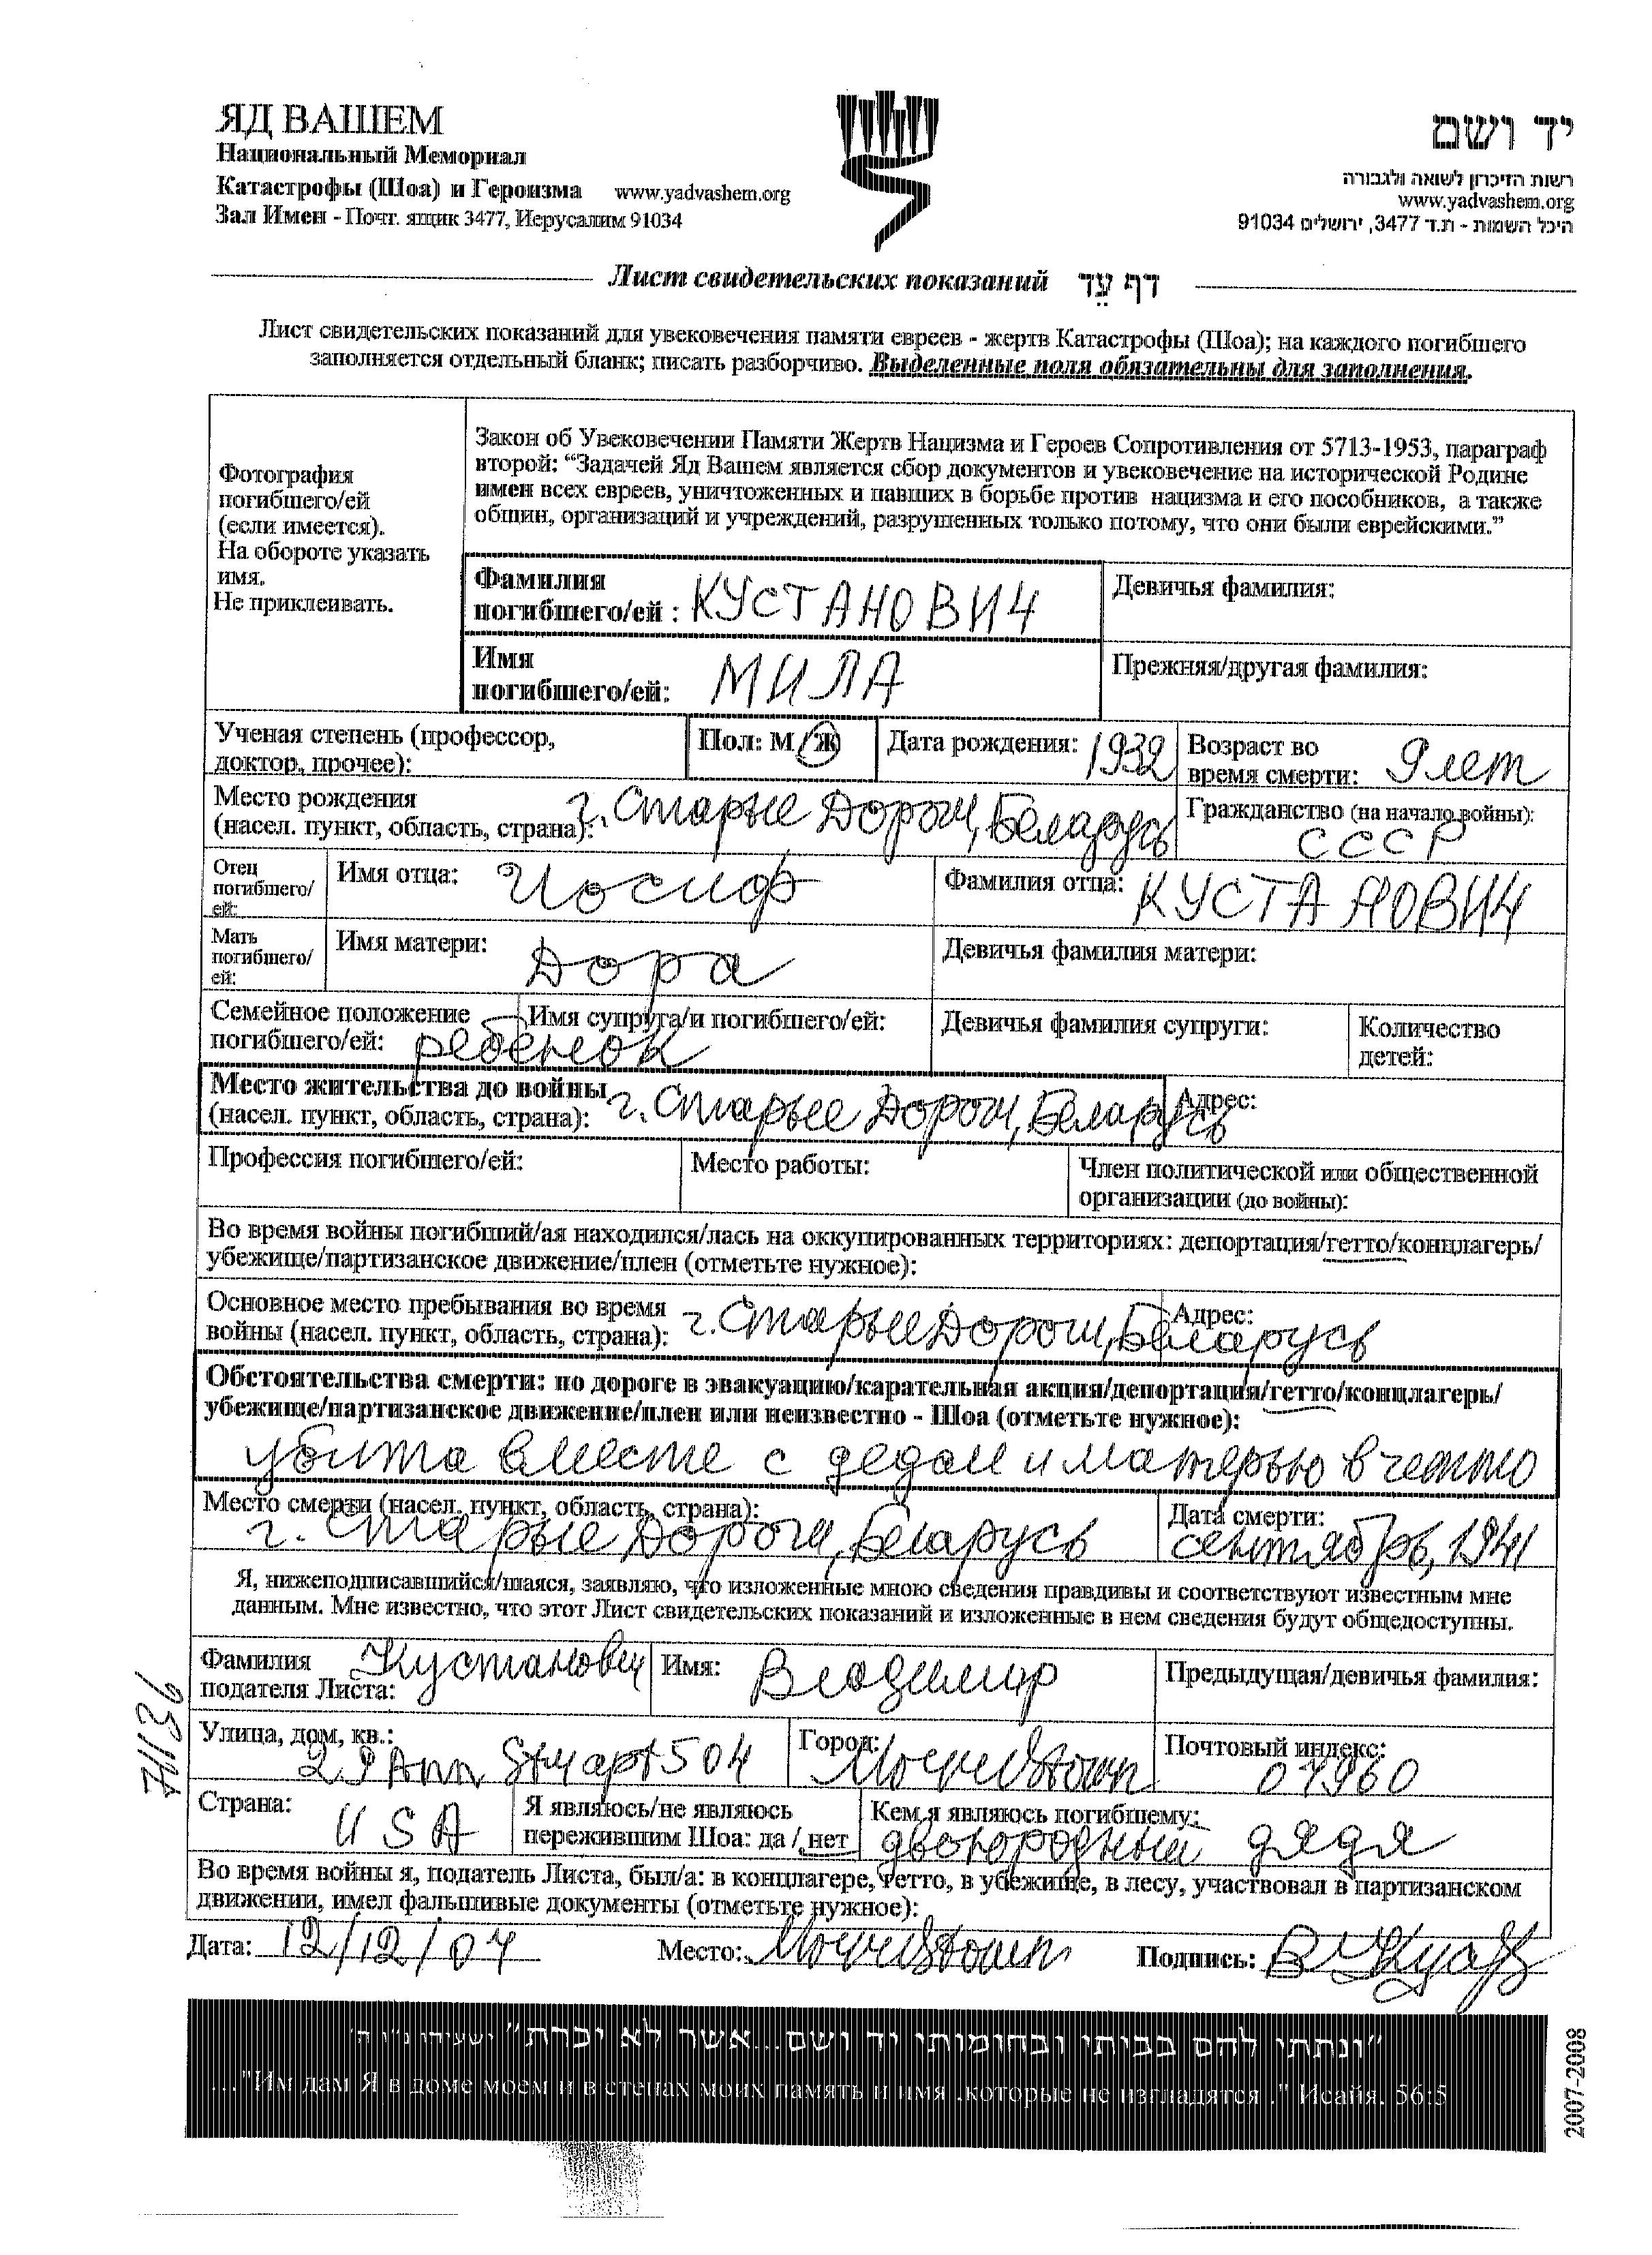 ЯД ВАШЕМ
Национальный Мемориал
Катастрофы (Шоа) и Героизма www.yadvashem.org
Зал Имен - Почт. ящик 3477, Иерусалим 91034
יד ושם
רשות הזיכרון לשואה ולגבורה
www.yadvashem.org
היכל השמות - ת.ד 3477, ירושלים 91034
Лист свидетельских показаний דף עֵד
Лист свидетельских показаний для увековечения памяти евреев - жертв Катастрофы (Шоа); на каждого погибшего
заполняется отдельный бланк; писать разборчиво. Выделенные поля обязательны для заполнения.
Фотография
погибшего/ей
(если имеется).
На обороте указать
имя.
Не приклеивать.
Закон об Увековечении Памяти Жертв Нацизма и Героев Сопротивления от 5713-1953, параграф
второй: “Задачей Яд Вашем является сбор документов и увековечение на исторической Родине
имен всех евреев, уничтоженных и павших в борьбе против нацизма и его пособников, а также
общин, организаций и учреждений, разрушенных только потому, что они были еврейскими.”
Фамилия
погибшего/ей : КУСТАНОВИЧ
Девичья фамилия:
Имя
погибшего/ей: МИЛА
Прежняя/другая фамилия:
Ученая степень (профессор,
доктор, прочее):
Пол: М/Ж
Дата рождения: 1932
Возраст во
время смерти: 9 лет
Место рождения
(насел. пункт, область, страна): г. Старые Дороги, Беларусь
Гражданство (на начало войны):
СССР
Отец
погибшего/
ей:
Имя отца: Иосиф
Фамилия отца: КУСТАНОВИЧ
Мать
погибшего/
ей:
Имя матери: Дора
Девичья фамилия матери:
Семейное положение
погибшего/ей: ребенок
Имя супруга/и погибшего/ей:
Девичья фамилия супруги:
Количество
детей:
Место жительства до войны
(насел. пункт, область, страна): г. Старые Дороги, Беларусь
Адрес:
Профессия погибшего/ей:
Место работы:
Член политической или общественной
организации (до войны):
Во время войны погибший/ая находился/лась на оккупированных территориях: депортация/гетто/концлагерь/
убежище/партизанское движение/плен (отметьте нужное):
Основное место пребывания во время
войны (насел. пункт, область, страна): г. Старые Дороги, Беларусь
Адрес:
Обстоятельства смерти: по дороге в эвакуацию/карательная акция/депортация/гетто/концлагерь/
убежище/партизанское движение/плен или неизвестно - Шоа (отметьте нужное):
убита вместе с дедом и матерью в гетто
Место смерти (насел. пункт, область, страна):
г. Старые Дороги, Беларусь
Дата смерти:
сентябрь, 1941
Я, нижеподписавшийся/шаяся, заявляю, что изложенные мною сведения правдивы и соответствуют известным мне
данным. Мне известно, что этот Лист свидетельских показаний и изложенные в нем сведения будут общедоступны.
Фамилия
подателя Листа: Кустанович
Имя: Владимир
Предыдущая/девичья фамилия:
Улица, дом, кв.:
29 Ann St apt 504
Город: Morristown
Почтовый индекс:
07960
Страна: USA
Я являюсь/не являюсь
пережившим Шоа: да / нет
Кем я являюсь погибшему:
двоюродный дядя
Во время войны я, податель Листа, был/а: в концлагере, гетто, в убежище, в лесу, участвовал в партизанском
движении, имел фальшивые документы (отметьте нужное):
Дата: 12/12/07 Место: Morristown Подпись:
"ונתתי להם בביתי ובחומותי יד ושם...אשר לא יכרת" ישעיהו נ"ו ה'
..."Им дам Я в доме моем и в стенах моих память и имя ,которые не изгладятся ." Исайя. 56:5
2007-2008